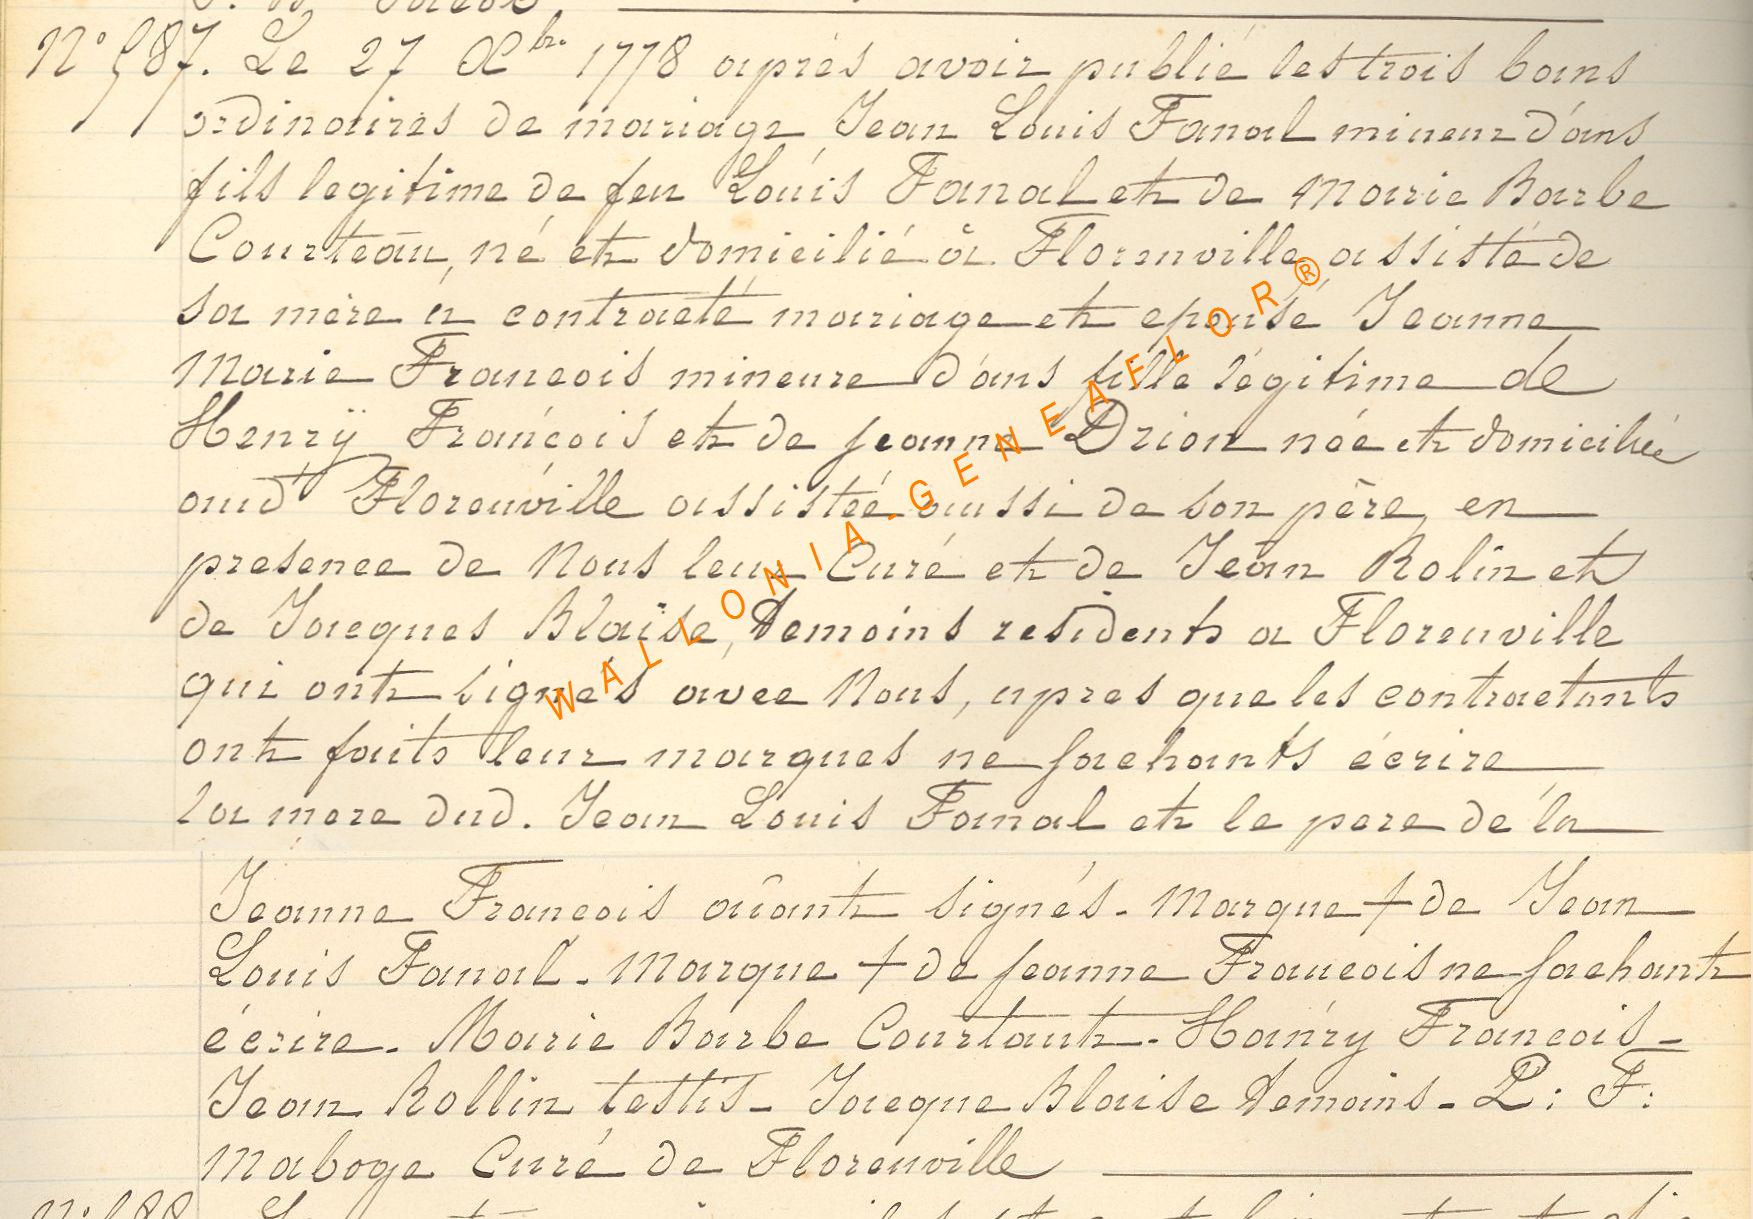 N° 587. Le 27 Xbr. 1778 après avoir publié les trois bans
ordinaires de mariage Jean Louis Fanal mineur d'ans
fils legitime de feu Louis Fanal et de Marie Barbe
Courteau, né et domicilié à Florenville, assisté de
sa mère à contracté mariage et epousé Jeanne
Marie Francois mineure d'ans fille légitime de
Henrÿ François et de Jeanne Drion née et domiciliée
aud Florenville assistée aussi de son père, en
presence de Nous leur Curé et de Jean Rolin et
de Jacques Blaise, temoins residents a Florenville
qui ont signés avec Nous, apres que les contractants
ont faits leur marques ne sachants écrire
la mere dud. Jean Louis Fanal et le pere de la
Jeanne Francois aiant signés. Marque + de Jean
Louis Fanal. Marque + de Jeanne Francois ne sachant
écrire. Marie Barbe Courtaut. Hanry Francois.
Jean Rollin testis. Jacque Blaise temoins. P: F:
Maboge Curé de Florenville
WALLONIA-GENEAFLOR®